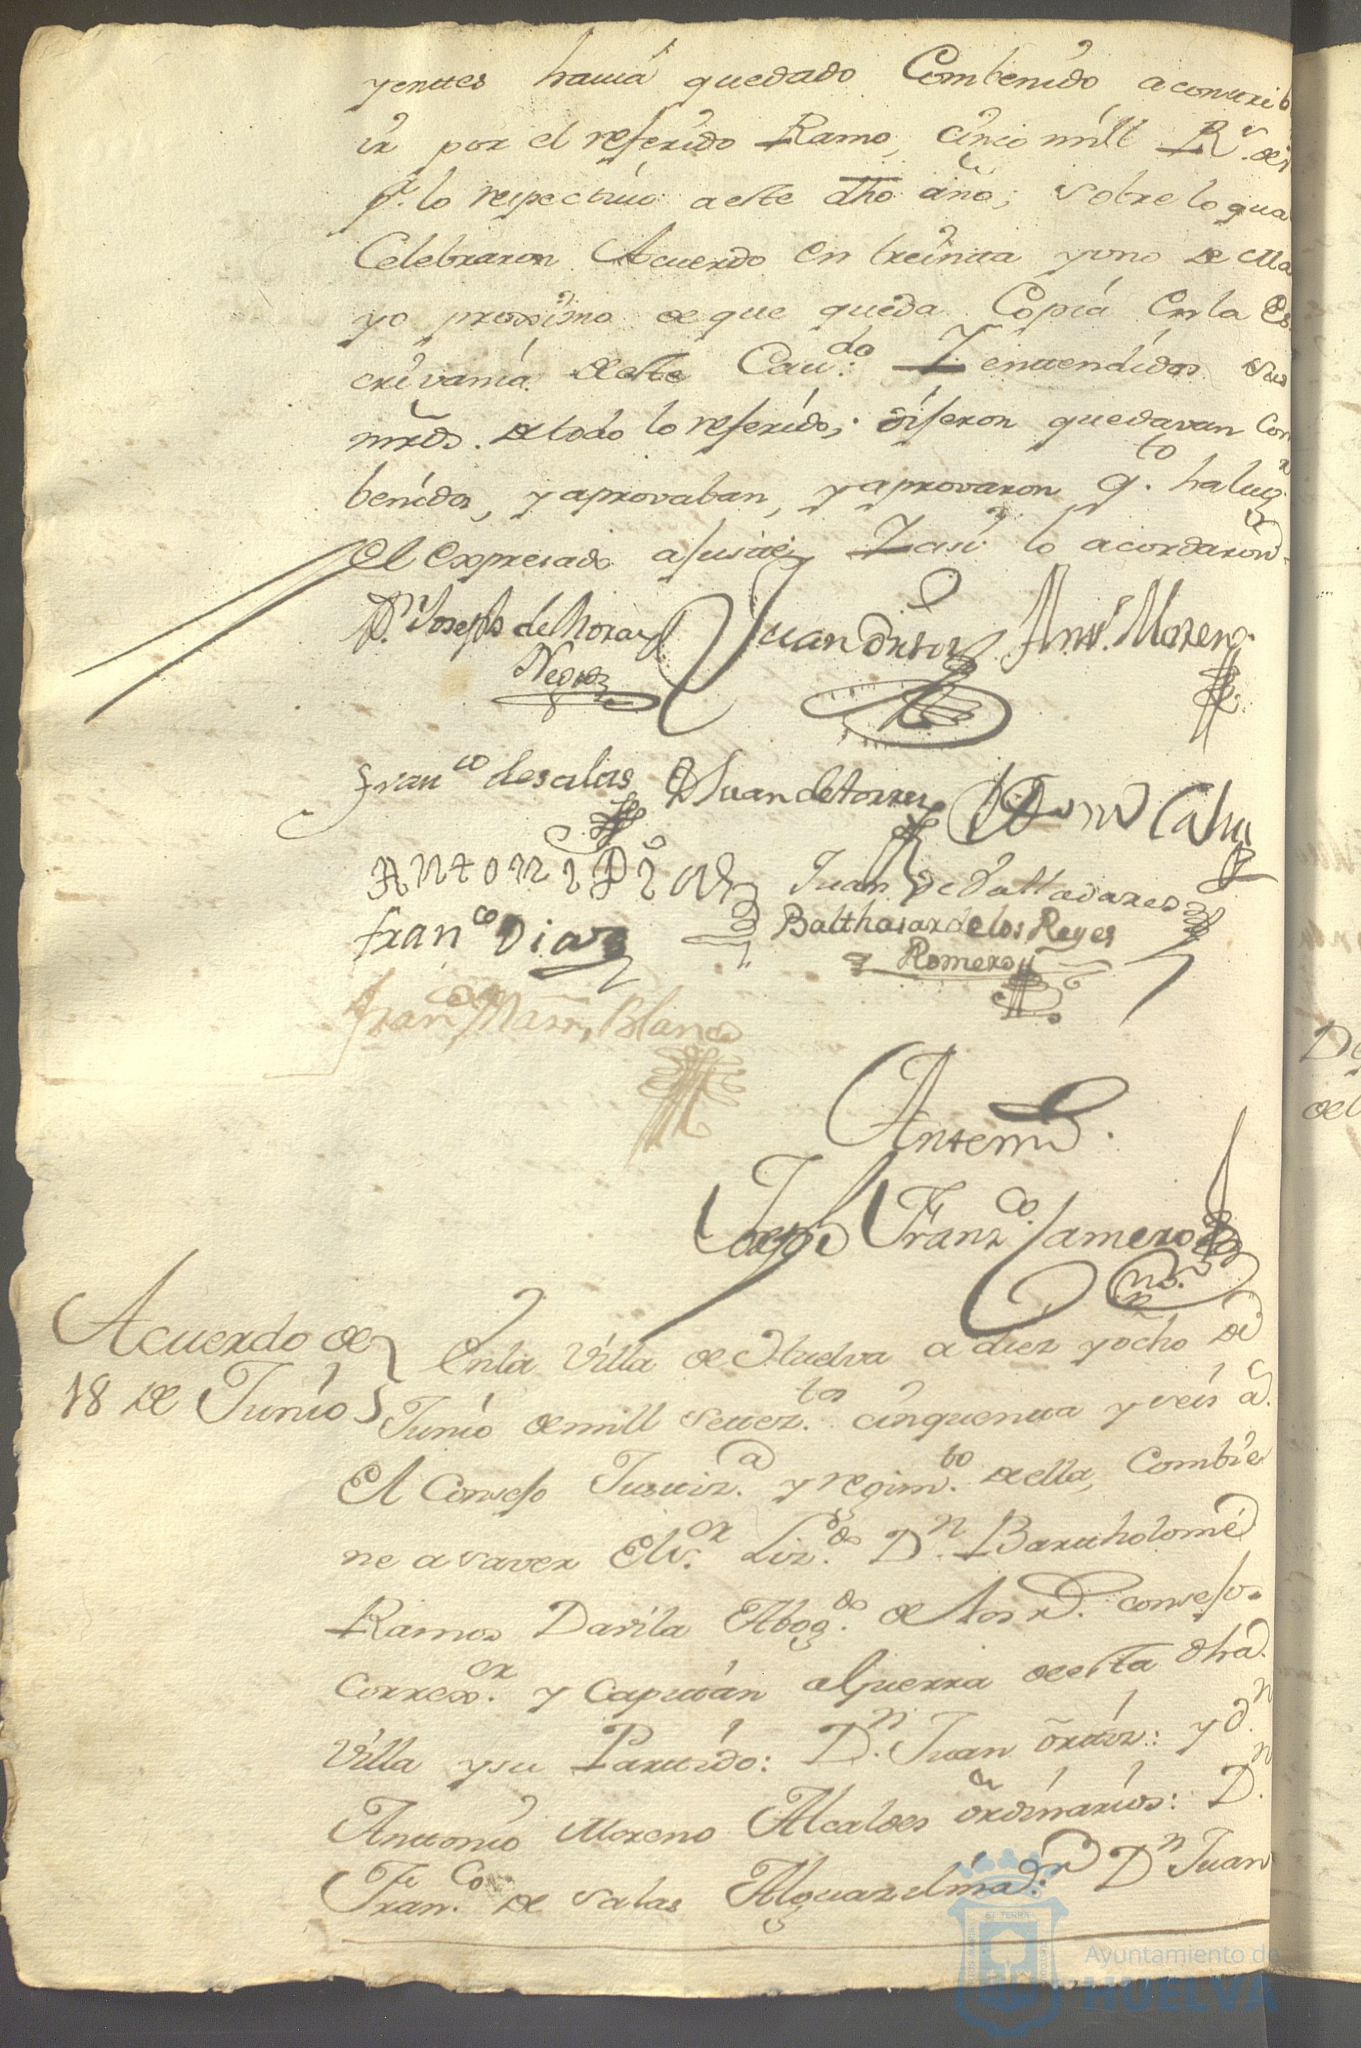 yentes havia quedado Combenido a contrib
uir por el referido Ramo, cinco mill R.s de v
p.r lo respectivo a este dho año; sobre lo qua
Celebraron Acuerdo en treinta y uno de Ma
yo proximo de que queda Copia en la Es
crivania de este Cav.do Y entendidos sus
mrds. de todo lo referido; dijeron quedavan Com
benidos, y aprovaban, y aprovaron q.to ha lug.r
el expresado ajuste; Y asi lo acordaron
D.n Joseph de Mora y Juan Ortiz Ant.o Moreno
Negro
Fran.co de salas D Juan de torres
Antoni Juan de Valladares
fran.co Diaz Balthasar de los Reyes
Romero
Fran.co Marn, Blanco
Antemi
Joseph Franz.co Camero
Acuerdo de
18 de Junio
En la Villa de Huelva a diez y ocho de
Junio de mill setez.tos cinquenta y seis a.s
El Consejo Justiz.a y regim.to de ella, Combie
ne a saver El s.or Liz.do D.n Bartholomé
Ramos Davila Abog.do de los r.s consejos
Correx.or y Capitán a Guerra de esta dha
Villa y su Partido: D.n Juan ôrtiz: y d.n
Antonio Moreno Alcaldes ôrdinarios: D.n
Fran.co de salas Alguazil maor: D.n Juan
ET TERRÆ
Ayuntamiento de
HUELVA